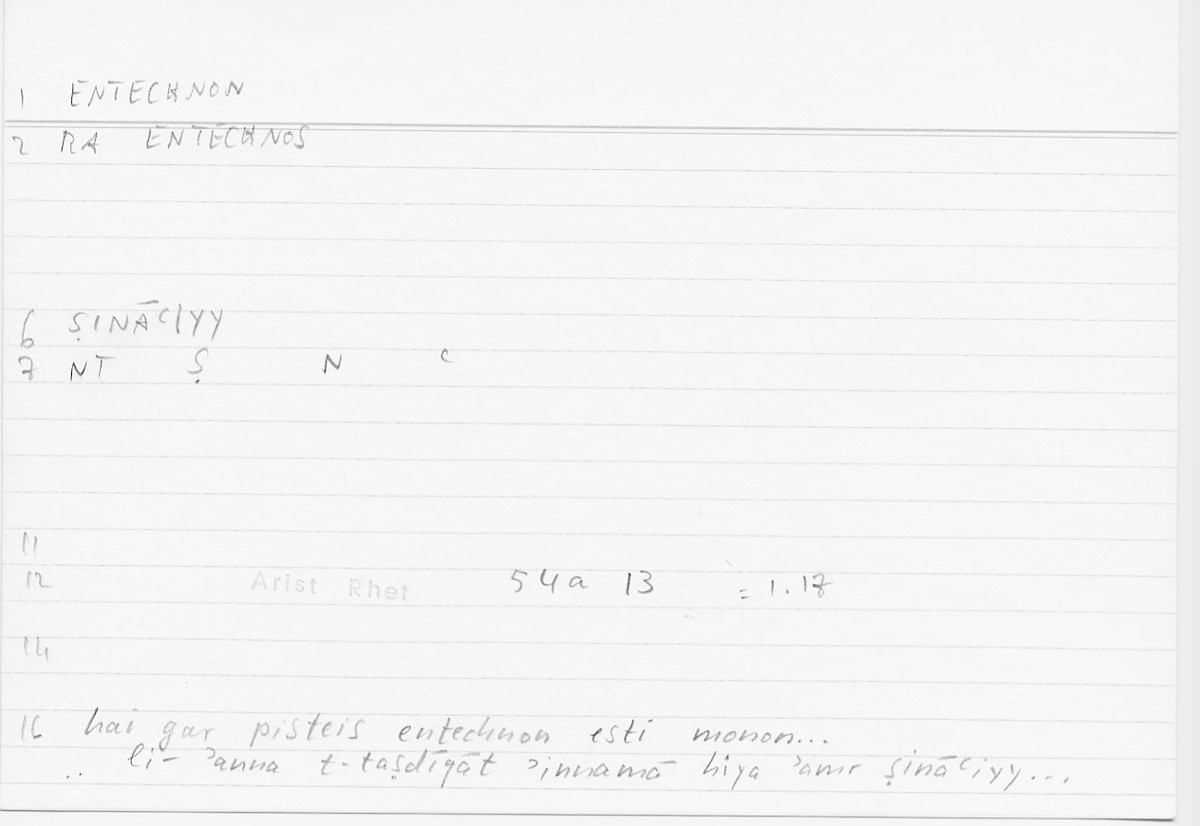 1 ENTECHNON
2 RA ENTECHNOS
6 ṢINĀʿIYY
7 NT Ṣ N ʿ
11
12 Arist Rhet 54a 13 = 1.17
14
16 hai gar pisteis entechnon esti monon...
.. li-ʾanna t-taṣdīqāt ʾinnamā hiya ʾamr ṣināʿiyy...